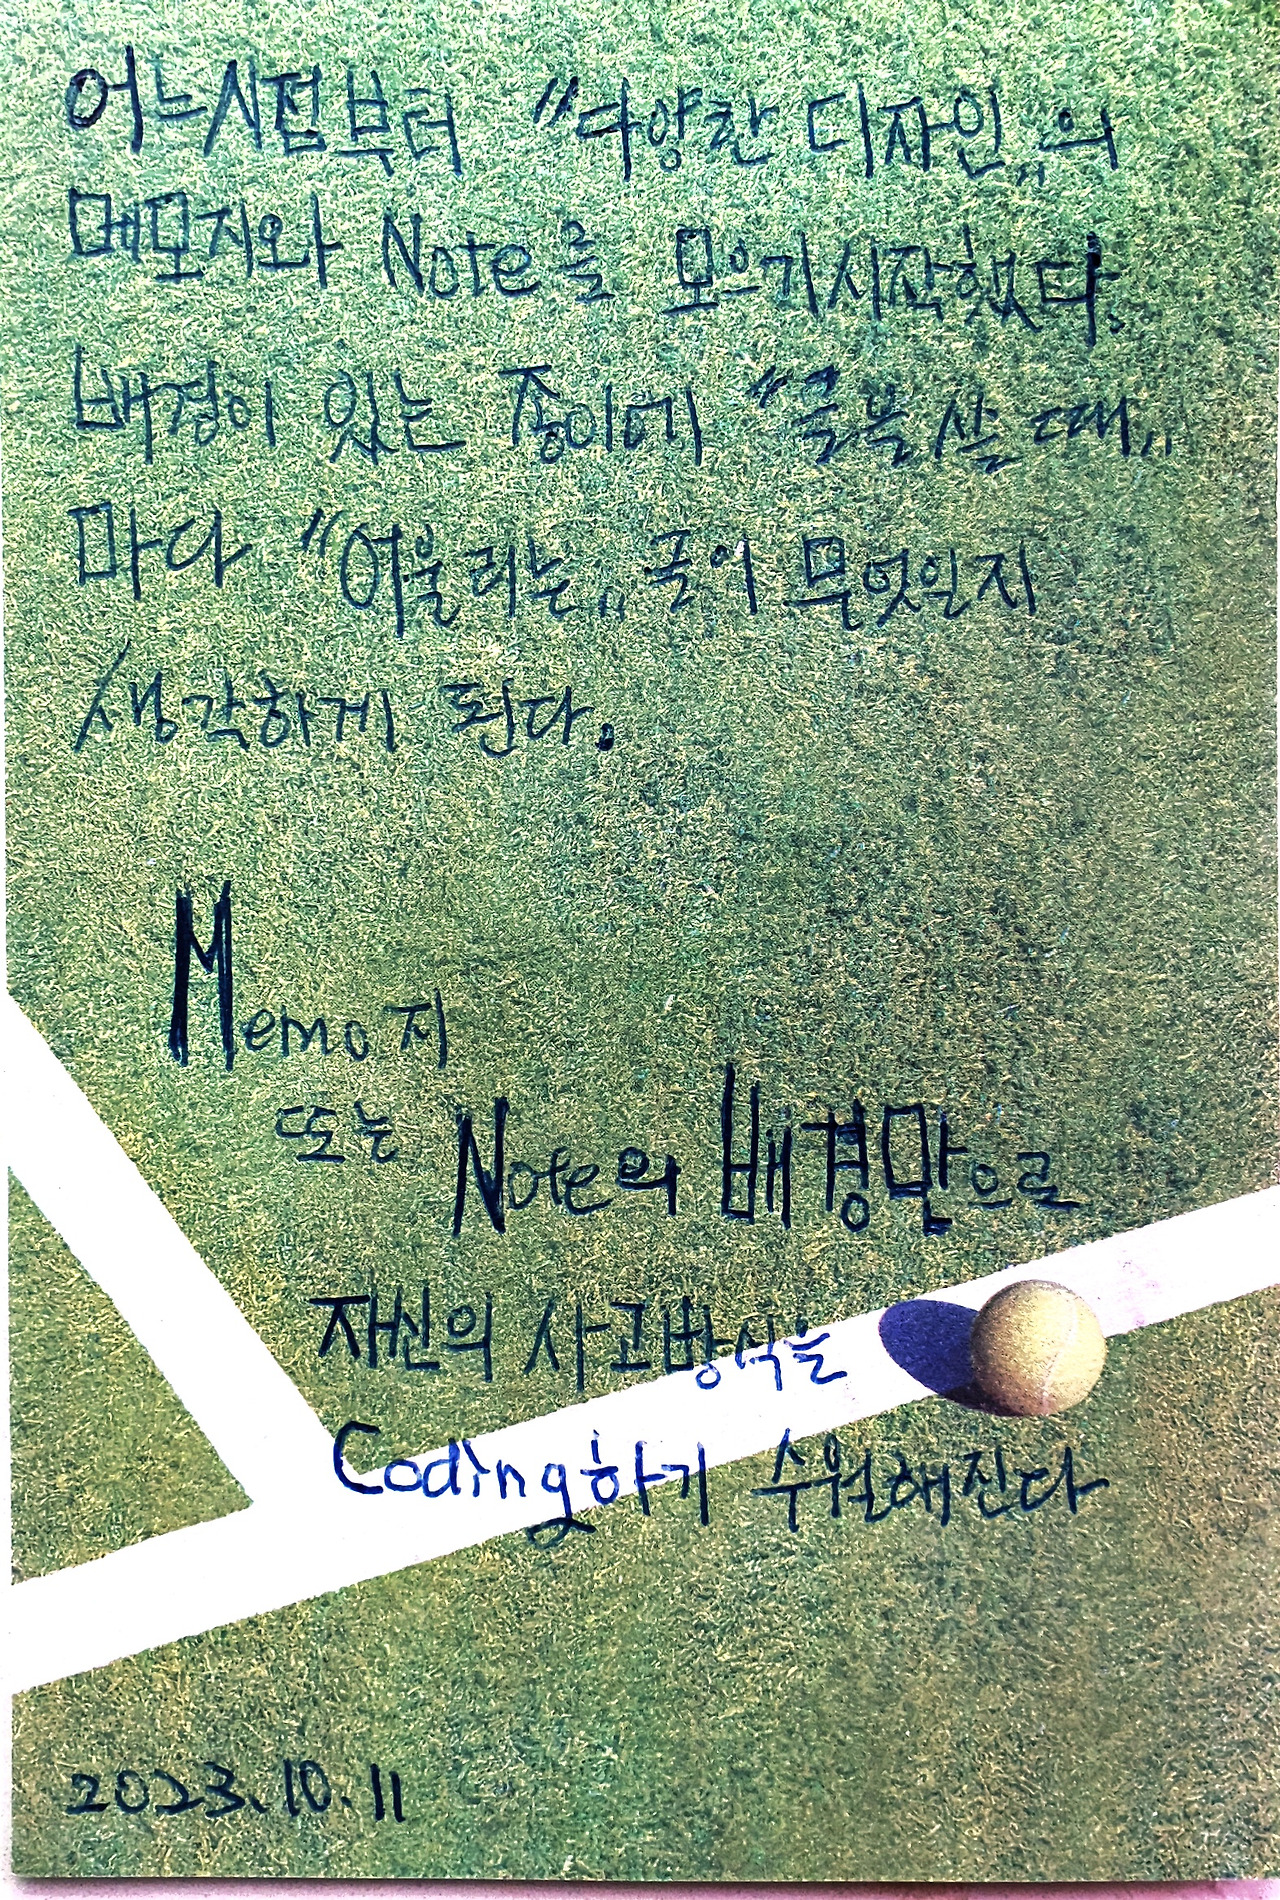 어느시점부터 "다양한 디자인"의
메모지와 Note를 모으기시작했다.
배경이 있는 종이에 "글을 쓸 때"
마다 "어울리는" 글이 무엇일지
생각하게 된다.
Memo지
또는 Note의 배경만으로
자신의 사고방식을
Coding하기 수월해진다
2023.10.11